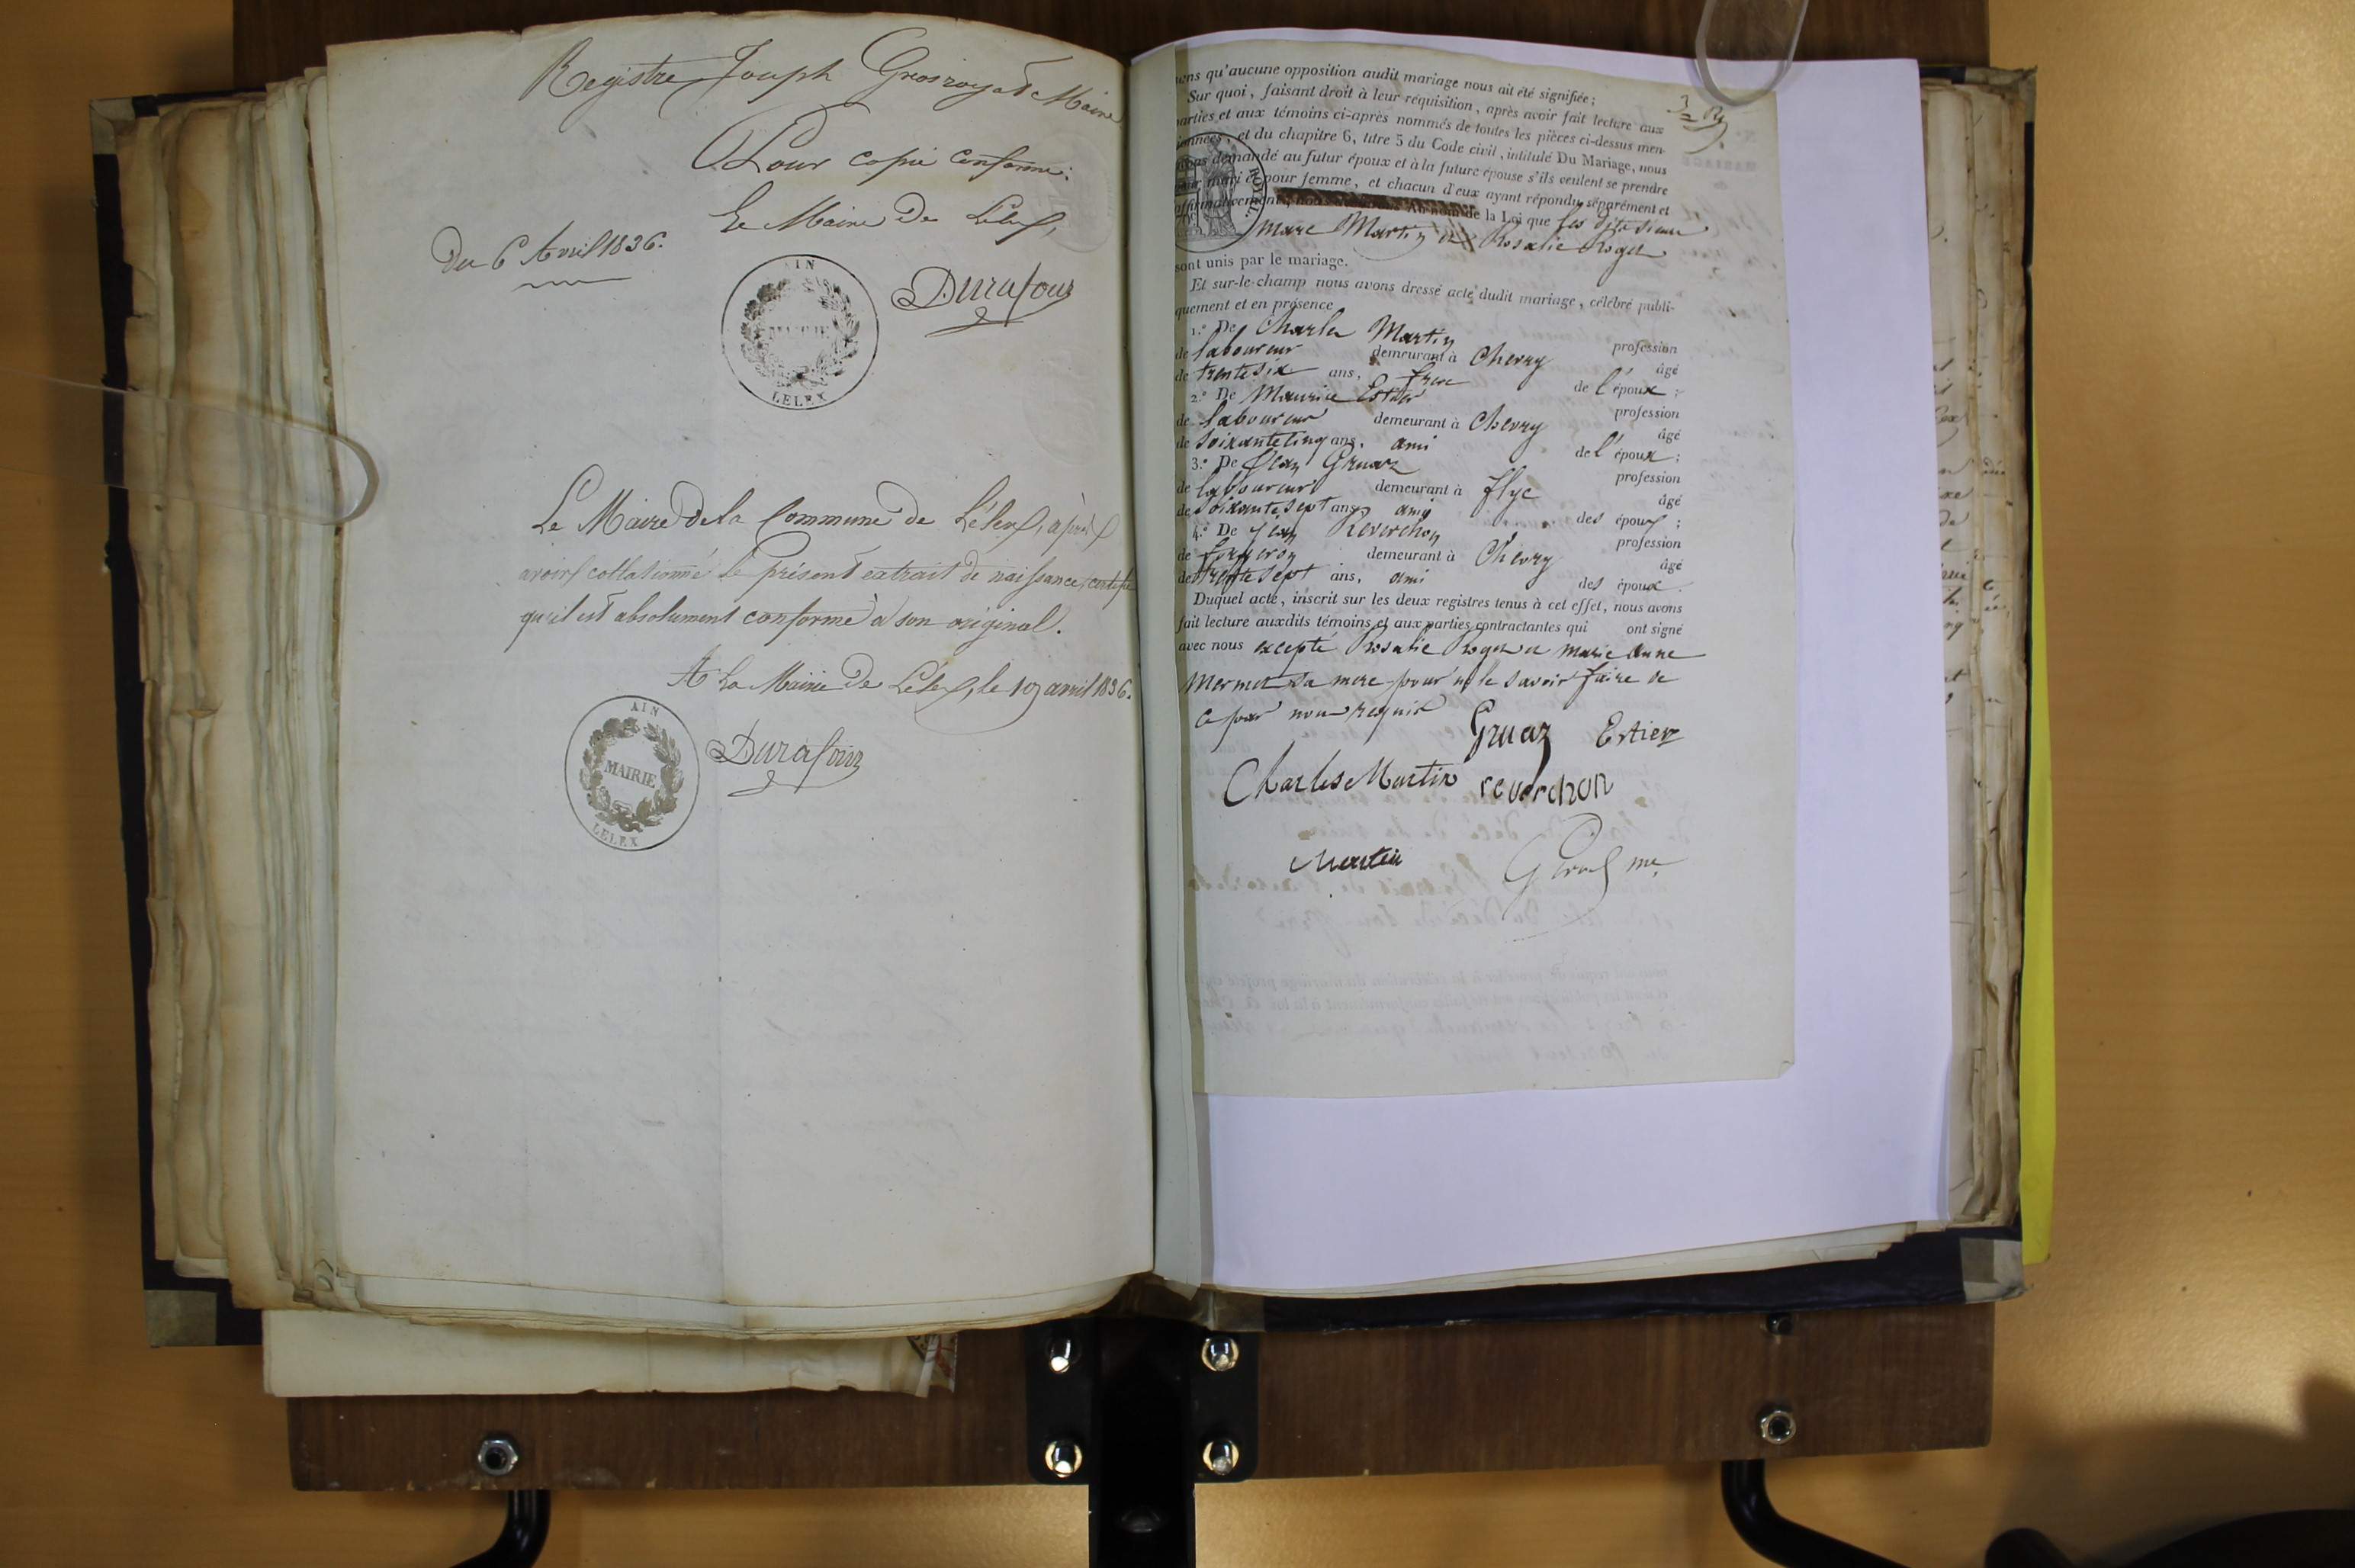 Registre Joseph Grosroyat Maire
Pour copie conforme:
Le Maire De Lélex,
Du 6 Avril 1836.
AIN
MAIRIE
LELEX
Durafour
Le Maire de la Commune de Lélex, après
avoir collationné le présent extrait de naissance, certifie
qu'il est absolument conforme à son original.
A la Mairie de Lélex, le 10 avril 1836.
AIN
MAIRIE
LELEX
Durafour
3e
qu'aucune opposition audit mariage nous ait été signifiée;
Sur quoi, faisant droit à leur réquisition, après avoir fait lecture aux
parties et aux témoins ci-après nommés de toutes les pièces ci-dessus men-
ionnées, et du chapitre 6, titre 5 du Code civil, intitulé Du Mariage, nous
avons demandé au futur époux et à la future épouse s'ils veulent se prendre
pour mari et pour femme, et chacun d'eux ayant répondu séparément et
affirmativement, de la Loi que les dits sieur
ROYAL
Marc Martin et Rosalie Roget
sont unis par le mariage.
Et sur-le-champ nous avons dressé acte dudit mariage, célébré publi-
quement et en présence
1.° De Charles Martin profession
de laboureur demeurant à Chevry âgé
de trente six ans, frere de l'époux;
2.° De Maurice Estier profession
de laboureur demeurant à Chevry âgé
de soixante cinq ans, ami de l'époux;
3.° De Jean Gruaz profession
de laboureur demeurant à flye âgé
de soixante sept ans, ami des époux;
4.° De Jean Reverchon profession
de forgeron demeurant à Chevry âgé
de trente sept ans, ami des époux.
Duquel acte, inscrit sur les deux registres tenus à cet effet, nous avons
fait lecture auxdits témoins et aux parties contractantes qui ont signé
avec nous excepté Rosalie Roget et marie anne
Mermet sa mere pour ne le savoir faire de
ce par nous requis
Gruaz Estier
Charles Martin reverchon
Martin